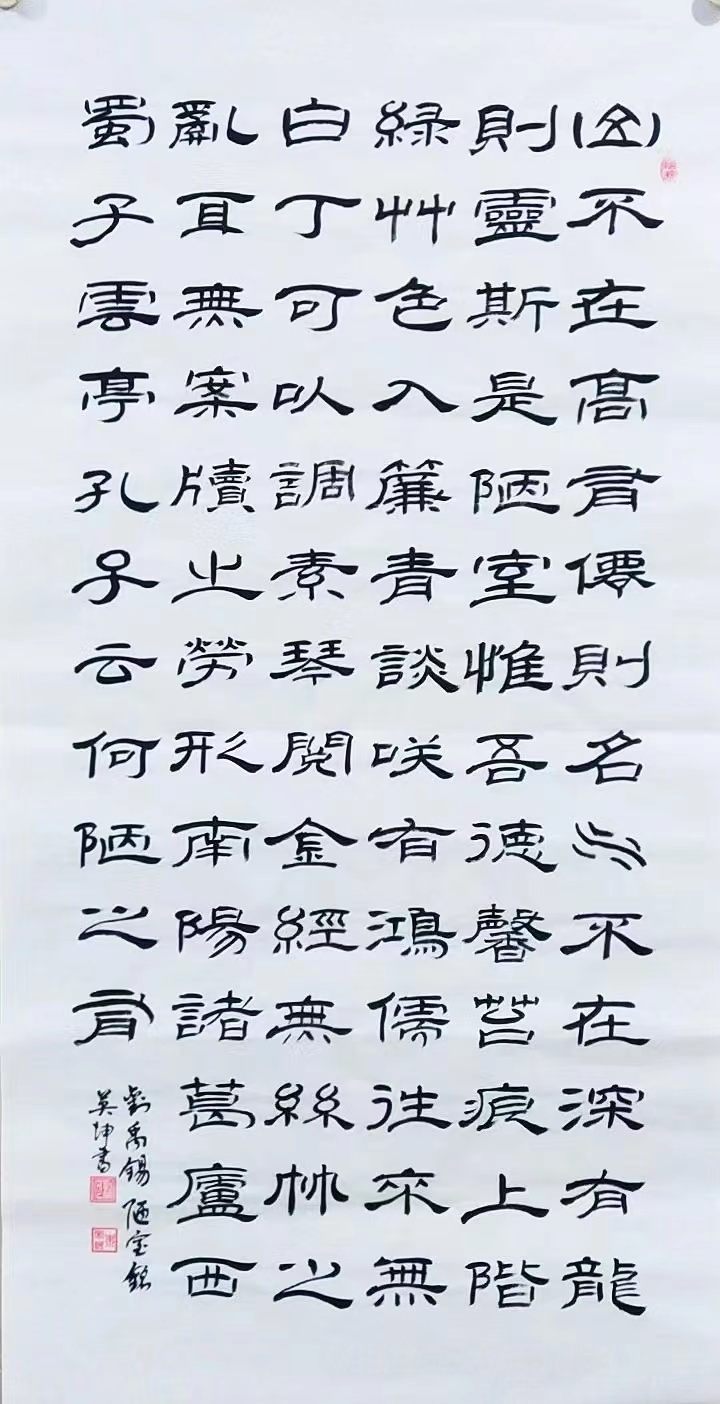 山不在高有僊則名水不在深有龍
則靈斯是陋室惟吾德馨苔痕上階
緑艸色入簾青談咲有鴻儒往來無
白丁可以調素琴閲金經無絲竹之
亂耳無案牘之勞形南陽諸葛廬西
蜀子雲亭孔子云何陋之有
劉禹錫陋室銘
坤書